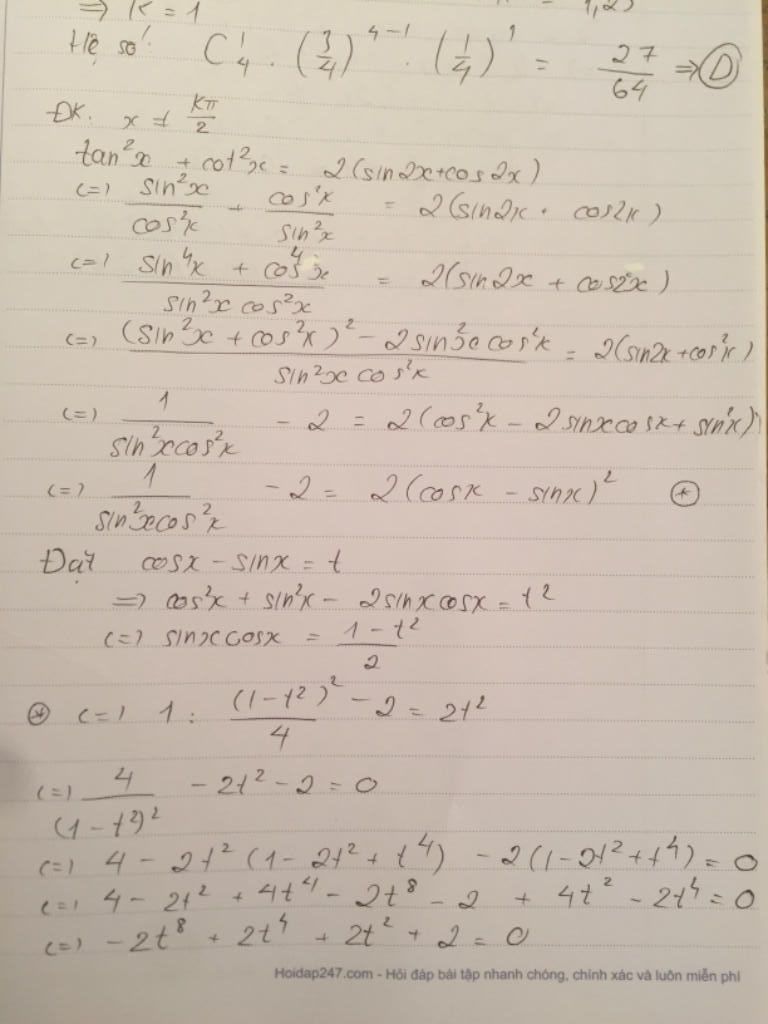 => K = 1
Hệ số: C¹₄ . (3/4)⁴⁻¹ . (1/4)¹ = 27/64 => D
ĐK. x ≠ kπ/2
tan²x + cot²x = 2(sin2x+cos2x)
(=) sin²x/cos²x + cos²x/sin²x = 2(sin2x + cos2x)
(=) (sin⁴x + cos⁴x)/(sin²x cos²x) = 2(sin2x + cos2x)
(=) ((sin²x + cos²x)² - 2sin²x cos²x)/(sin²x cos²x) = 2(sin2x+cos²x)
(=) 1/(sin²xcos²x) - 2 = 2(cos²x - 2sinxcosx + sin²x)
(=) 1/(sin²xcos²x) - 2 = 2(cosx - sinx)² (*)
Đặt cosx - sinx = t
=> cos²x + sin²x - 2sinxcosx = t²
(=) sinxcosx = (1-t²)/2
(*) (=) 1 : (1-t²)²/4 - 2 = 2t²
(=) 4/(1-t²)² - 2t² - 2 = 0
(=) 4 - 2t² (1 - 2t² + t⁴) - 2(1-2t²+t⁴) = 0
(=) 4 - 2t² + 4t⁴ - 2t⁸ - 2 + 4t² - 2t⁴ = 0
(=) -2t⁸ + 2t⁴ + 2t² + 2 = 0
Hoidap247.com - Hỏi đáp bài tập nhanh chóng, chính xác và luôn miễn phí